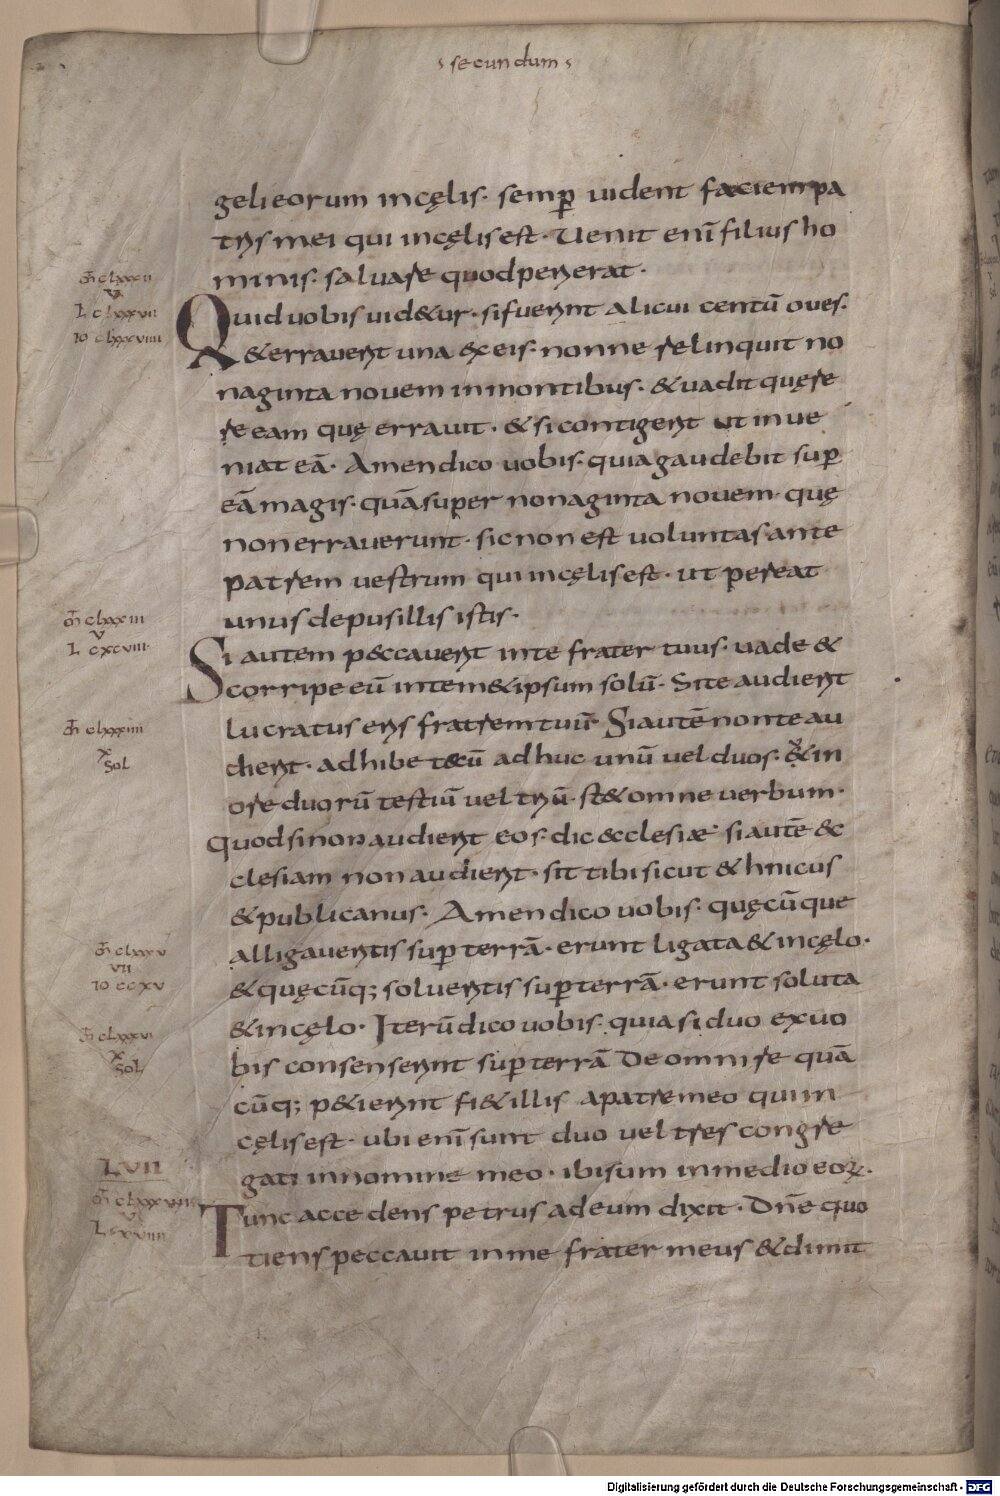 secundum
gelieorum incęlis· semꝑ uident faciempa
trismei qui incęlisest· Uenit enī filius ho
minis· saluare quodperierat·
m̄ clxxxii
VI
L clxxxvii
IO clxxxviiii
Quid uobis uid&ur· sifuerint alicui centū oues·
&erraverit una ex eis· nonne relinquit no
naginta novem inmontibus· &vadit quęre
re eam quę erravit· &sicontigerit ut inve
niat eā· Amendico vobis· quiagaudebit suꝑ
eāmagis· quāsuper nonaginta novem· quę
nonerraverunt· sicnon est voluntas ante
patrem vestrum qui incęlisest· ut pereat
unus depusillis istis·
m̄ clxxxiii
V
L cxcviii·
Si autem p&ccaverit inte frater tuus· vade &
corripe eū inter te &ipsum solū· Site audierit
m̄ clxxxiiii
x
Sol
lucratus eris fratremtuū· Siautē nonte au
dierit· adhibe tecū adhuc unū vel duos· &in
ore duorū testiū vel triū· st& omne verbum·
Quodsinon audierit eos· dic ecclesiæ· siautē &c
clesiam non audierit· sit tibi sicut & hnicus
&publicanus· Amen dico vobis· quęcūque
m̄ clxxxv
VII
IO ccxv
alligaveritis suꝑ terrā· erunt ligata & incęlo·
&quęcūq; solveritis suꝑterrā· erunt soluta
m̄ clxxxvi
x
Sol
&incęlo· Iterūdico vobis· quia si duo ex vo
bis consenserint suꝑterrā De omni re quā
cūq; p&ierint fi&illis apatremeo qui in
cęlisest· ubi enī sunt duo vel tres congre
LVII
gati innomine meo· ibisum inmedio eoꝝ·
m̄ clxxxvii
Tunc accedens petrus adeum dixit· Dnē quo
tiens peccavit inme frater meus &dimit
Digitalisierung gefördert durch die Deutsche Forschungsgemeinschaft - DFG